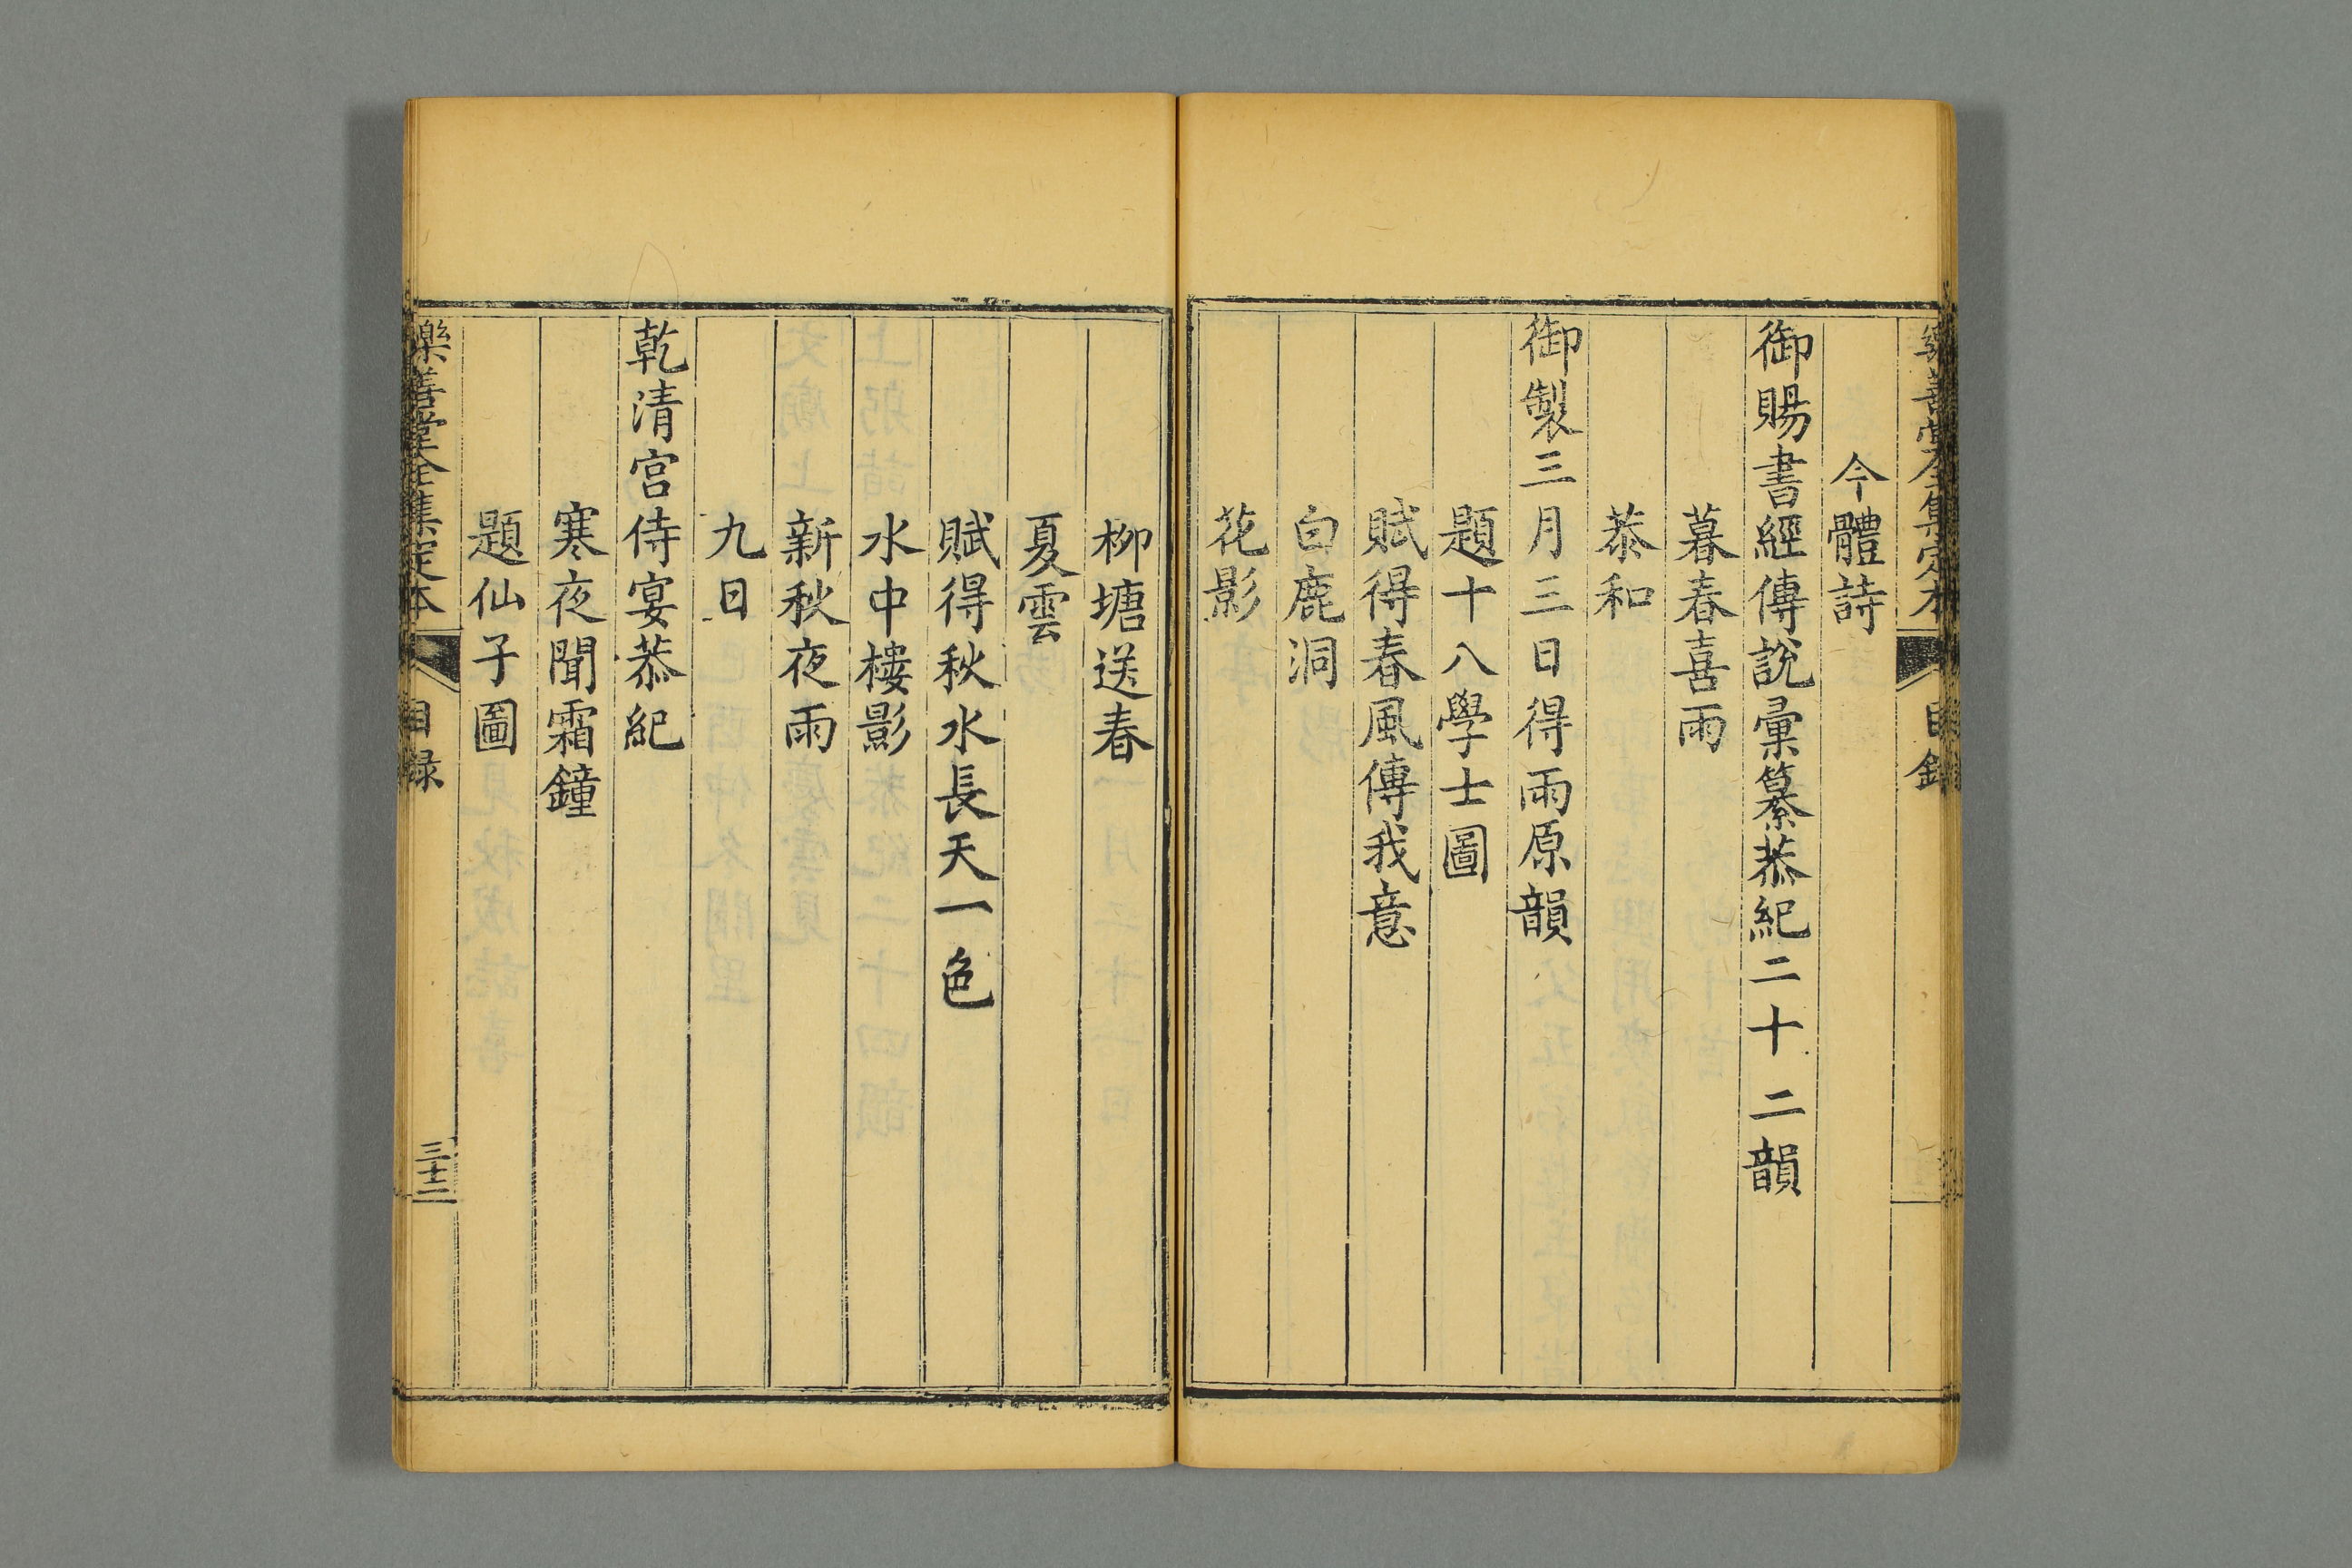 樂善堂全集定本 目錄
今體詩
御賜書經傳說彙纂恭紀二十二韻
暮春喜雨
恭和
御製三月三日得雨原韻
題十八學士圖
賦得春風傳我意
白鹿洞
花影
柳塘送春
夏雲
賦得秋水長天一色
水中樓影
新秋夜雨
九日
乾清宮侍宴恭紀
寒夜聞霜鐘
題仙子圖
樂善堂全集定本 目錄 三十二